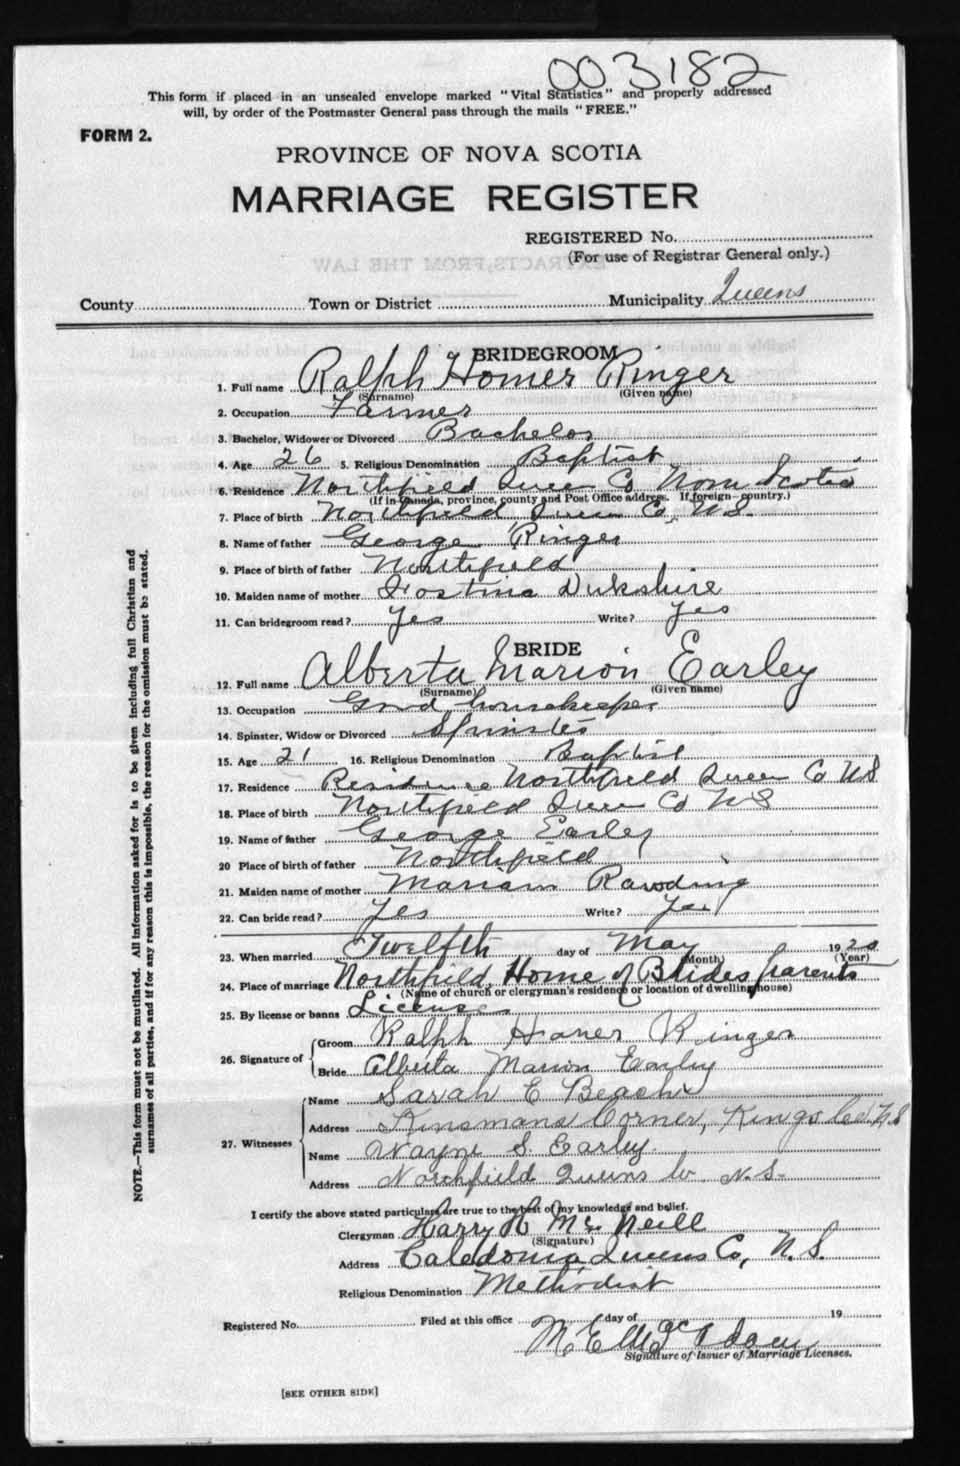 003182
This form if placed in an unsealed envelope marked "Vital Statistics" and properly addressed
will, by order of the Postmaster General pass through the mails "FREE."
FORM 2.
PROVINCE OF NOVA SCOTIA
MARRIAGE REGISTER
REGISTERED No.
(For use of Registrar General only.)
EXTRACTS FROM THE LAW
County Town or District Municipality Queens
BRIDEGROOM
1. Full name Ralph Homer Ringer
(Surname) (Given name)
2. Occupation Farmer
3. Bachelor, Widower or Divorced Bachelor
4. Age 26 5. Religious Denomination Baptist
6. Residence Northfield Queen Co Nova Scotia
(If in Canada, province, county and Post Office address. If foreign—country.)
7. Place of birth Northfield Queen Co, N.S.
8. Name of father George Ringer
9. Place of birth of father Northfield
10. Maiden name of mother Dukshire
11. Can bridegroom read? Yes Write? Yes
BRIDE
12. Full name Alberta Marion Earley
(Surname) (Given name)
13. Occupation Good housekeeper
14. Spinster, Widow or Divorced Spinster
15. Age 21 16. Religious Denomination Baptist
17. Residence Residence Northfield Queen Co NS
18. Place of birth Northfield Queen Co NS
19. Name of father George Earley
20 Place of birth of father Northfield
21. Maiden name of mother Mariam Rawding
22. Can bride read? Yes Write? Yes
23. When married Twelfth day of May 1920
(Month) (Year)
24. Place of marriage Northfield, Home of Brides parents
(Name of church or clergyman's residence or location of dwelling house)
25. By license or banns License
26. Signature of Groom Ralph Homer Ringer
Bride Alberta Marion Earley
27. Witnesses Name Sarah E Beach
Address Kinsmans Corner, Kings Co. N.S
Name Wayne S. Earley.
Address Northfield Queens Co N.S.
I certify the above stated particulars are true to the best of my knowledge and belief.
Clergyman Harry H McNeill
(Signature)
Address Caledonia, Queens Co, N.S.
Religious Denomination Methodist
Registered No. Filed at this office day of 19
M E
Signature of Issuer of Marriage Licenses.
[SEE OTHER SIDE]
NOTE.—This form must not be mutilated. All information asked for is to be given including full Christian and
surnames of all parties, and if for any reason this is impossible, the reason for the omission must be stated.